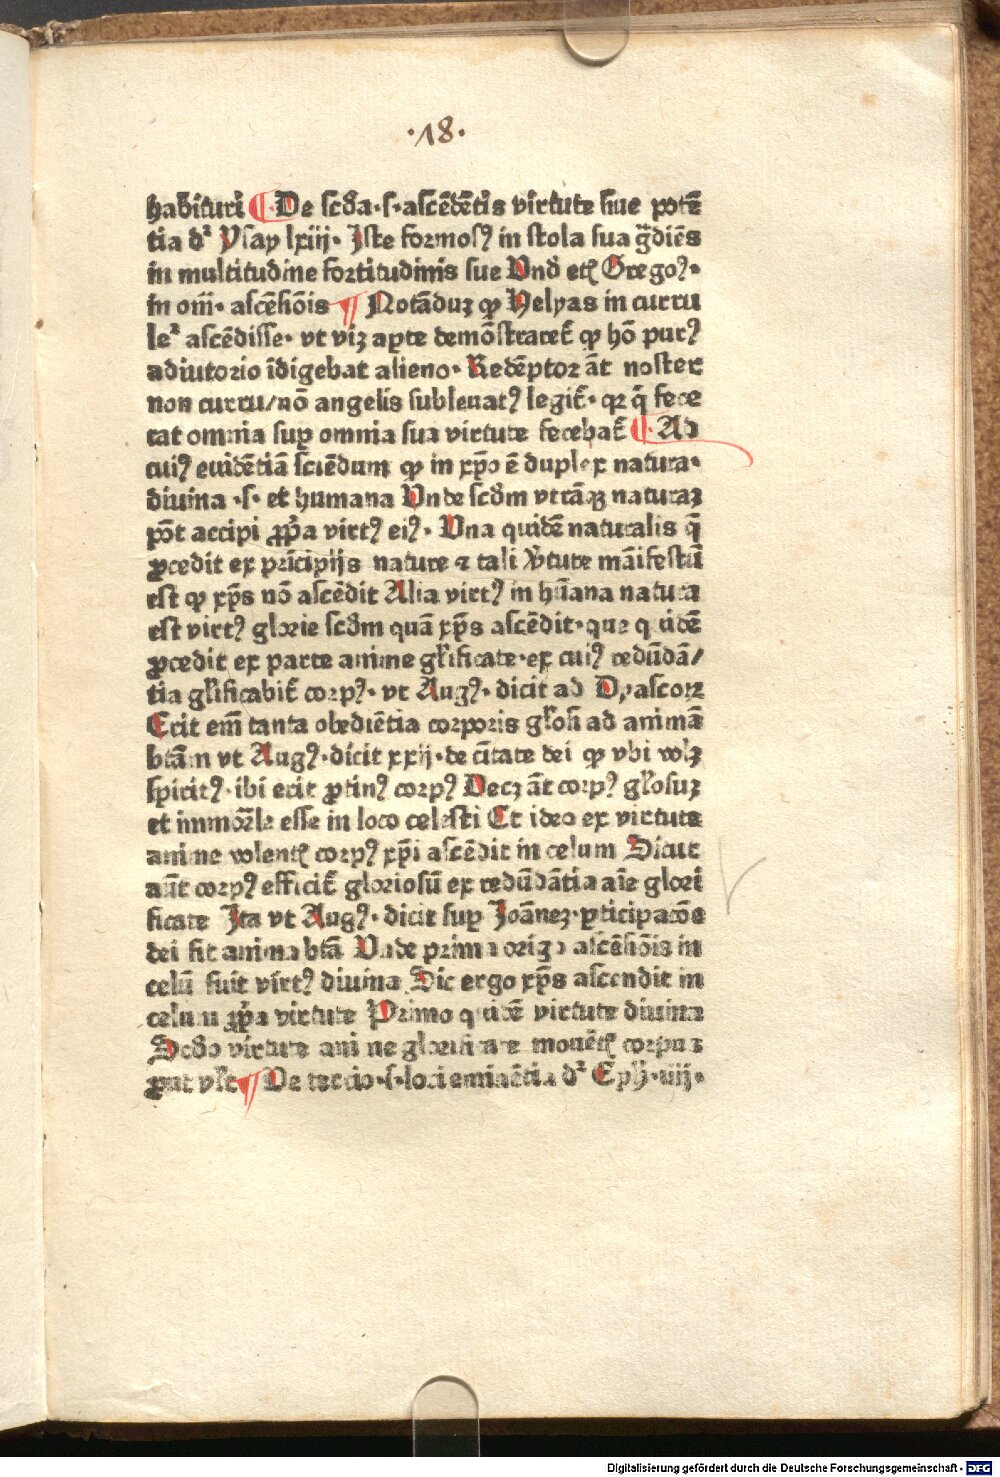 ·18·
habituri ¶ De scd̄a·s·ascēdētis virtute siue potē
tia dr̄ Ysay lxiij· Iste formosꝰ in stola sua gͣdiēs
in multitudine fortitudinis sue Vnd̄ etiā Gregoꝰ·
in omī· ascēsiōis ¶ Notāduꝫ ꝙ Helyas in curru
leꝰ ascēdisse· vt viꝫ aꝑte demōstrareť ꝙ hō purꝰ
adiutorio īdigebat alieno· Redēptor āt noster
non curru/nō angelis subleuatꝰ legiť· qꝛ q̄ fece
rat omnia suꝑ omnia sua virtute ferebať ¶ Ad
cuiꝰ euidētiā sciendum ꝙ in xp̄o ē duplex natura·
diuina ·s· et humana Vnde scd̄m vtrāqꝫ naturaꝫ
pōt accipi ꝓp̄a virtꝰ eiꝰ· Vna quidē naturalis q̄
ꝓcedit ex prīcipijs nature ⁊ tali v̓tute māifestū
est ꝙ xp̄s nō ascēdit Alia virtꝰ in hūana natura
est virtꝰ glorie scd̄m quā xp̄s ascēdit· que quidē
ꝓcedit ex parte anime gľificate·ex cuiꝰ redūdā/
tia gľificabiť corpꝰ· vt Augꝰ· dicit ad Dyascorꝫ
Erit em̄ tanta obediētia corporis gľosi ad animā
btām vt Augꝰ·dicit xxij·de c̄itate dei ꝙ vbi voľꝫ
spiritꝰ·ibi erit ꝓtinꝰ corpꝰ Decꝫ āt corpꝰ gľosuꝫ
et immōrle esse in loco celesti Et ideo ex virtute
anime volentꝭ corpꝰ xp̄i ascēdit in celum Sicut
aūt corpꝰ efficiť gloriosū ex redūdātia aīe glori
ficate Ita vt Augꝰ· dicit suꝑ Joāneꝫ·ꝑticipacōe
dei fit anima btā Vnde prima origo ascēsiōis in
celū fuit virtꝰ diuina Sic ergo xp̄s ascendit in
celum ꝓp̄a virtute Primo quidē virtute diuina
Scd̄o virtute anime glorificate mouētꝭ corpus
ꝓut vľt ¶ De tercio·s·loci eminētia dr̄ Eph·iiij·
Digitalisierung gefördert durch die Deutsche Forschungsgemeinschaft - DFG